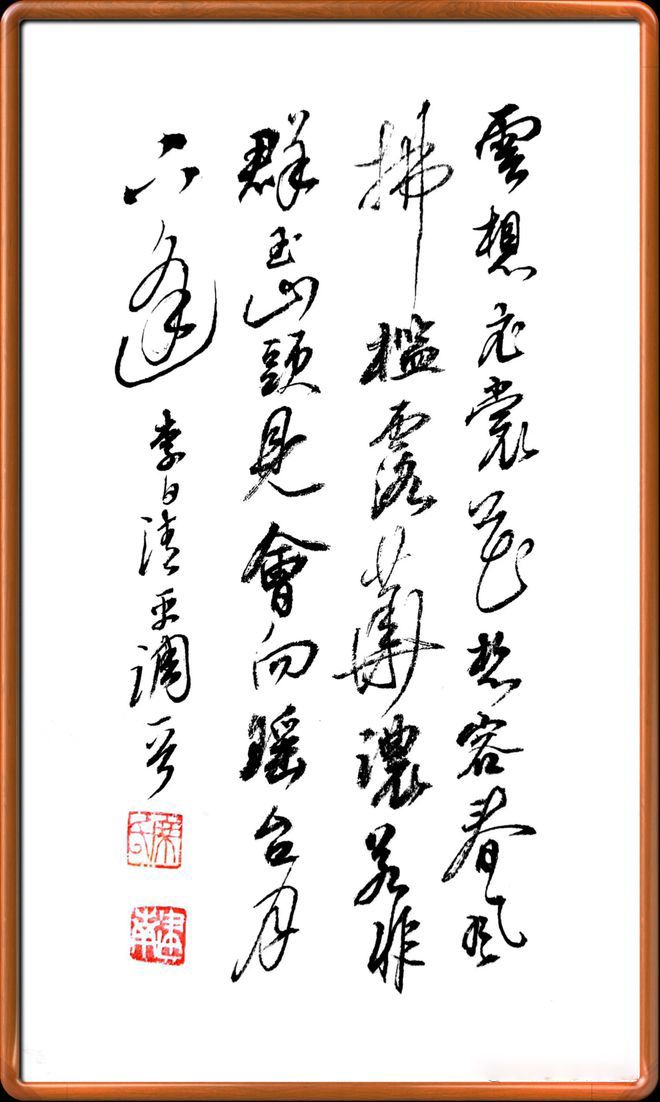 雲想衣裳花想容春風
拂檻露華濃若非
群玉山頭見會向瑶台月
下逢 李白清平調一首